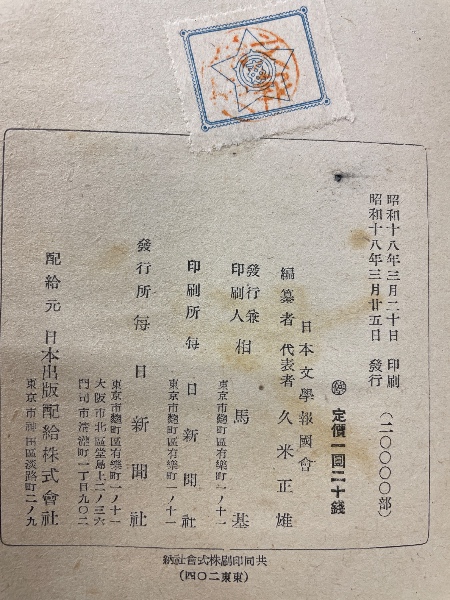 昭和十八年三月二十日 印刷
昭和十八年三月廿五日 發行
(二〇〇〇〇部)
定價一圓三十錢
日本文學報國會
編纂者 代表者 久米正雄
發行兼
印刷人 相馬基
東京市麴町區有樂町一ノ十一
印刷所 每日新聞社
東京市麴町區有樂町一ノ十一
發行所 每日新聞社
東京市麴町區有樂町一ノ十一
大阪市北區堂島上二ノ三六
門司市清瀧町一丁目九〇二
配給元 日本出版配給株式會社
東京市神田區淡路町二ノ九
共同印刷株式會社納
(東東二〇四)